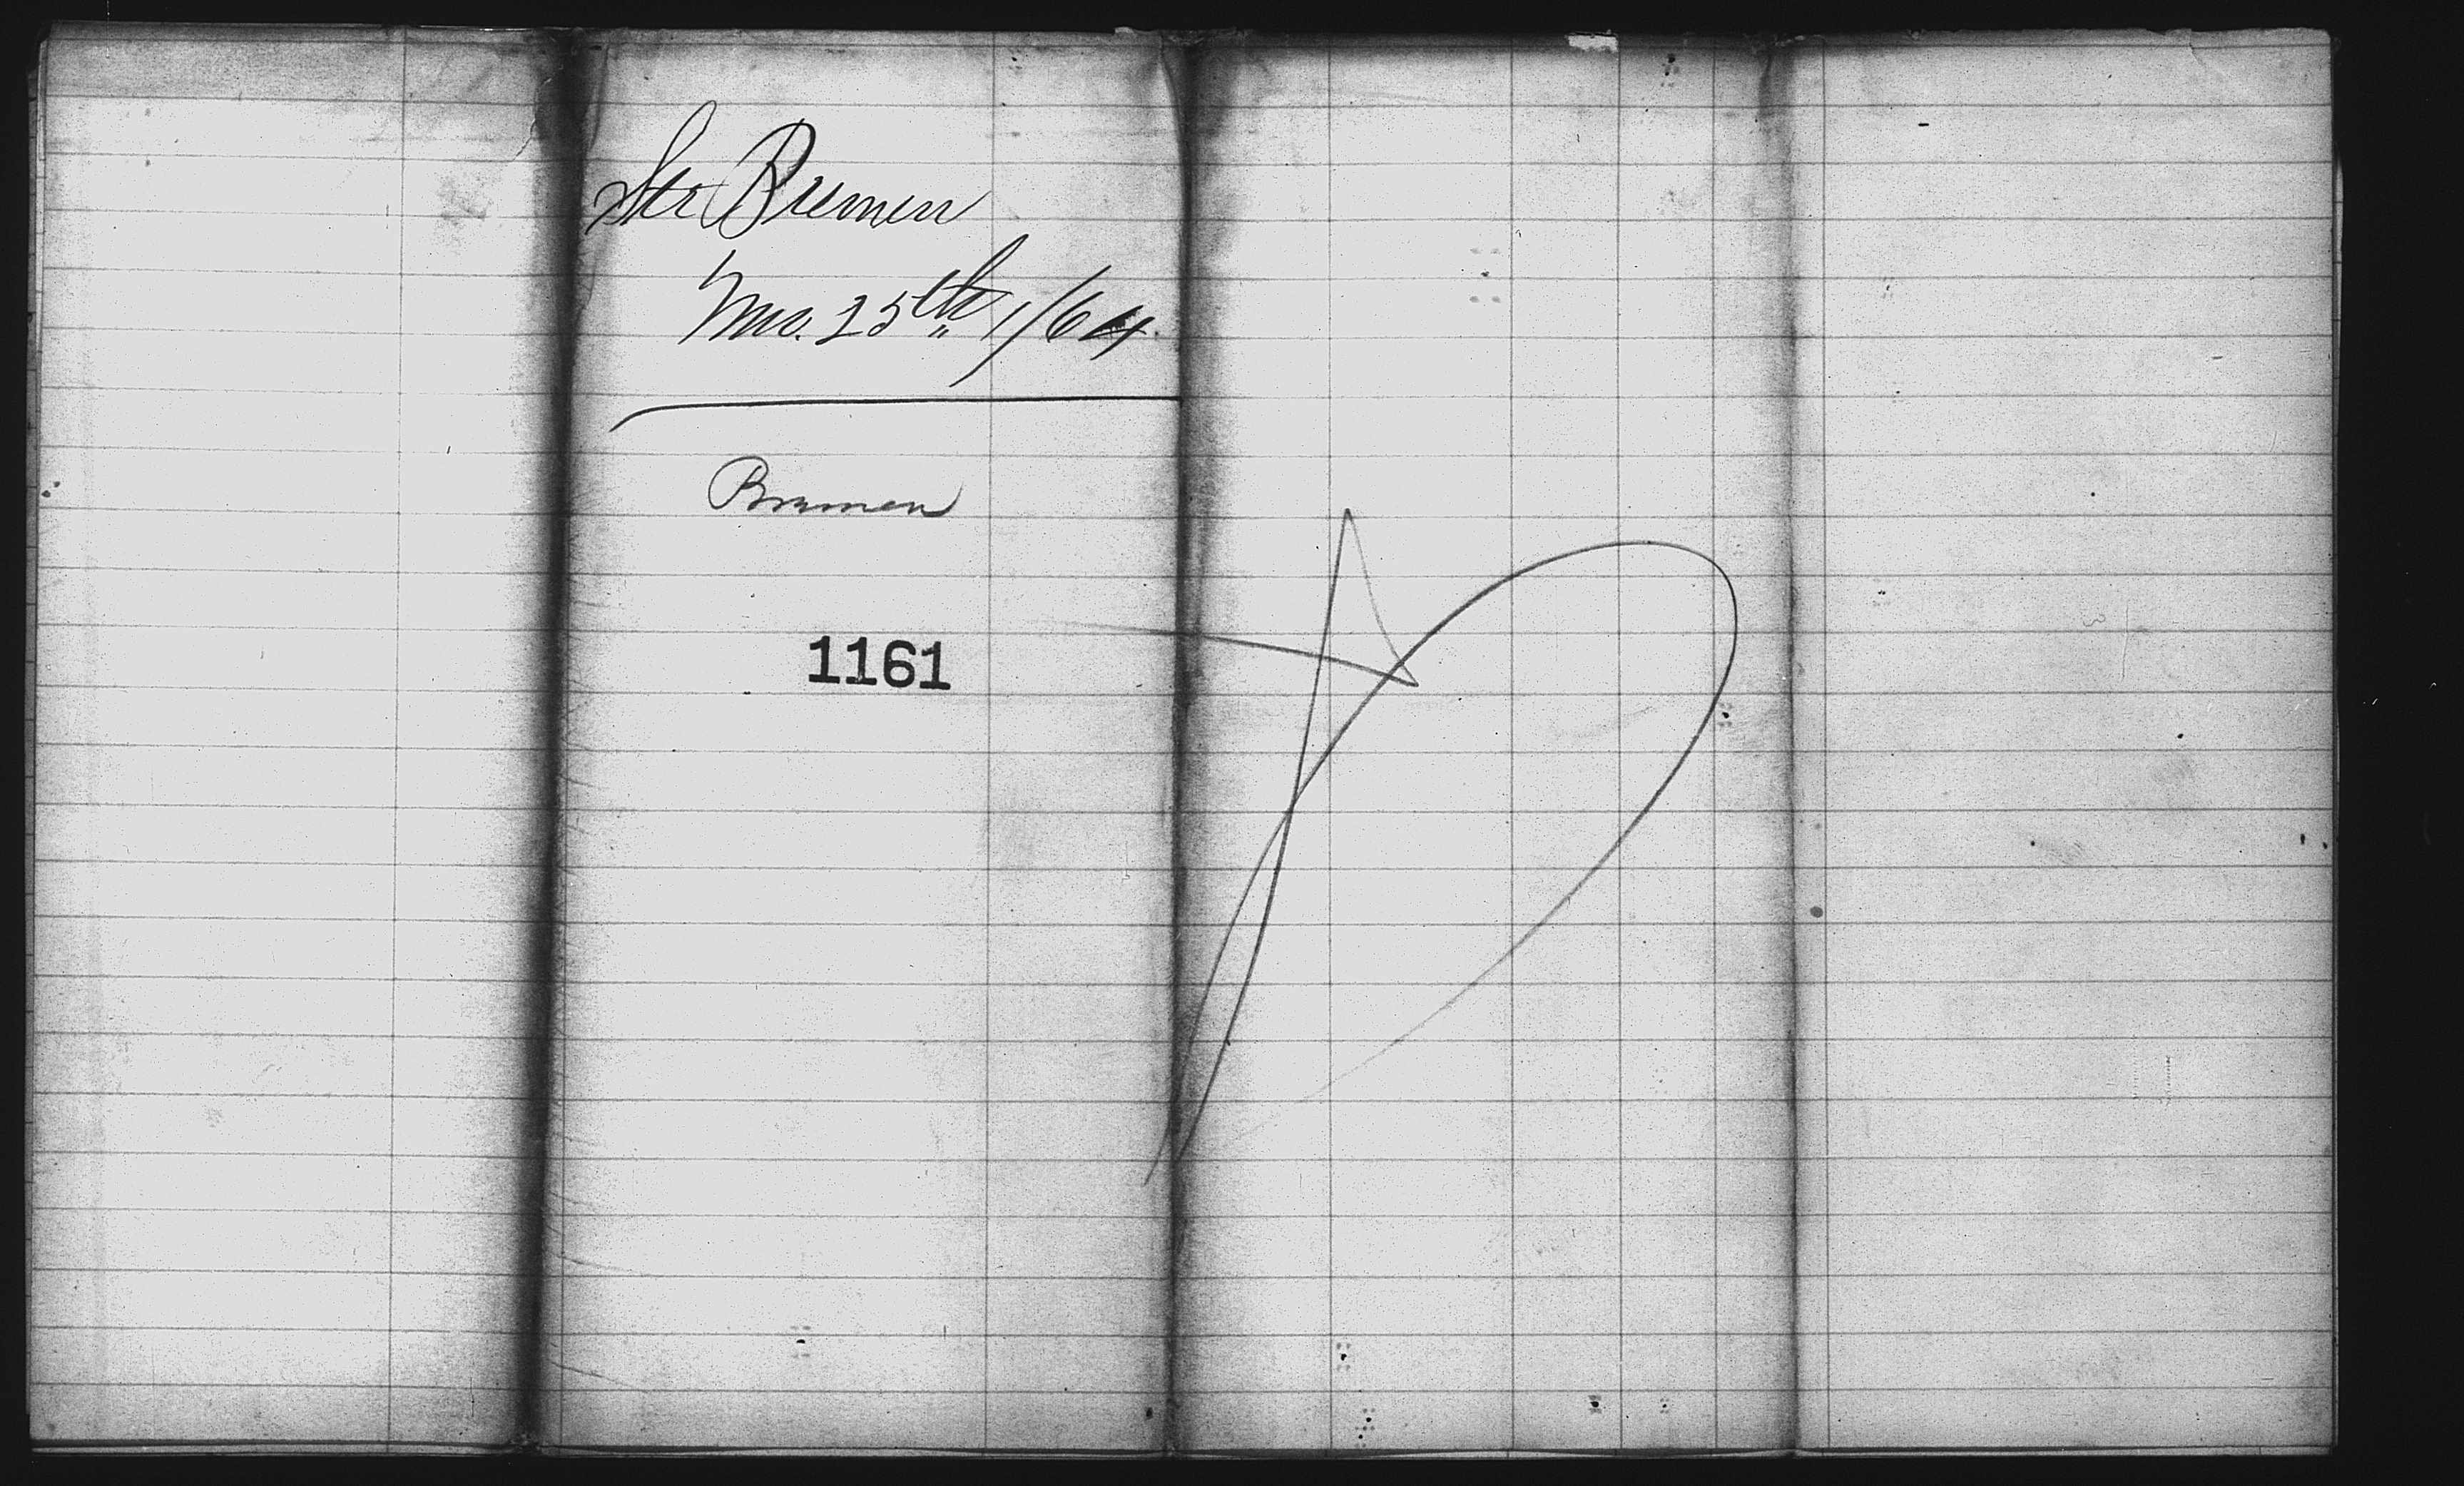 Str Bremen
Nov. 25th 1/64
Bremen
1161